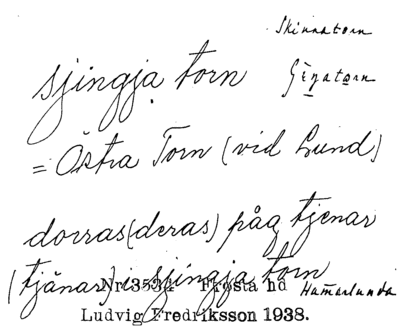 Skinnatorn
sjingja torn
= Östra Torn (vid Lund)
dorras (deras) påg tjenar
(tjänar) i sjingja torn
Nr 3534 Frosta hd Hamarlunda
Ludvig Fredriksson 1938.